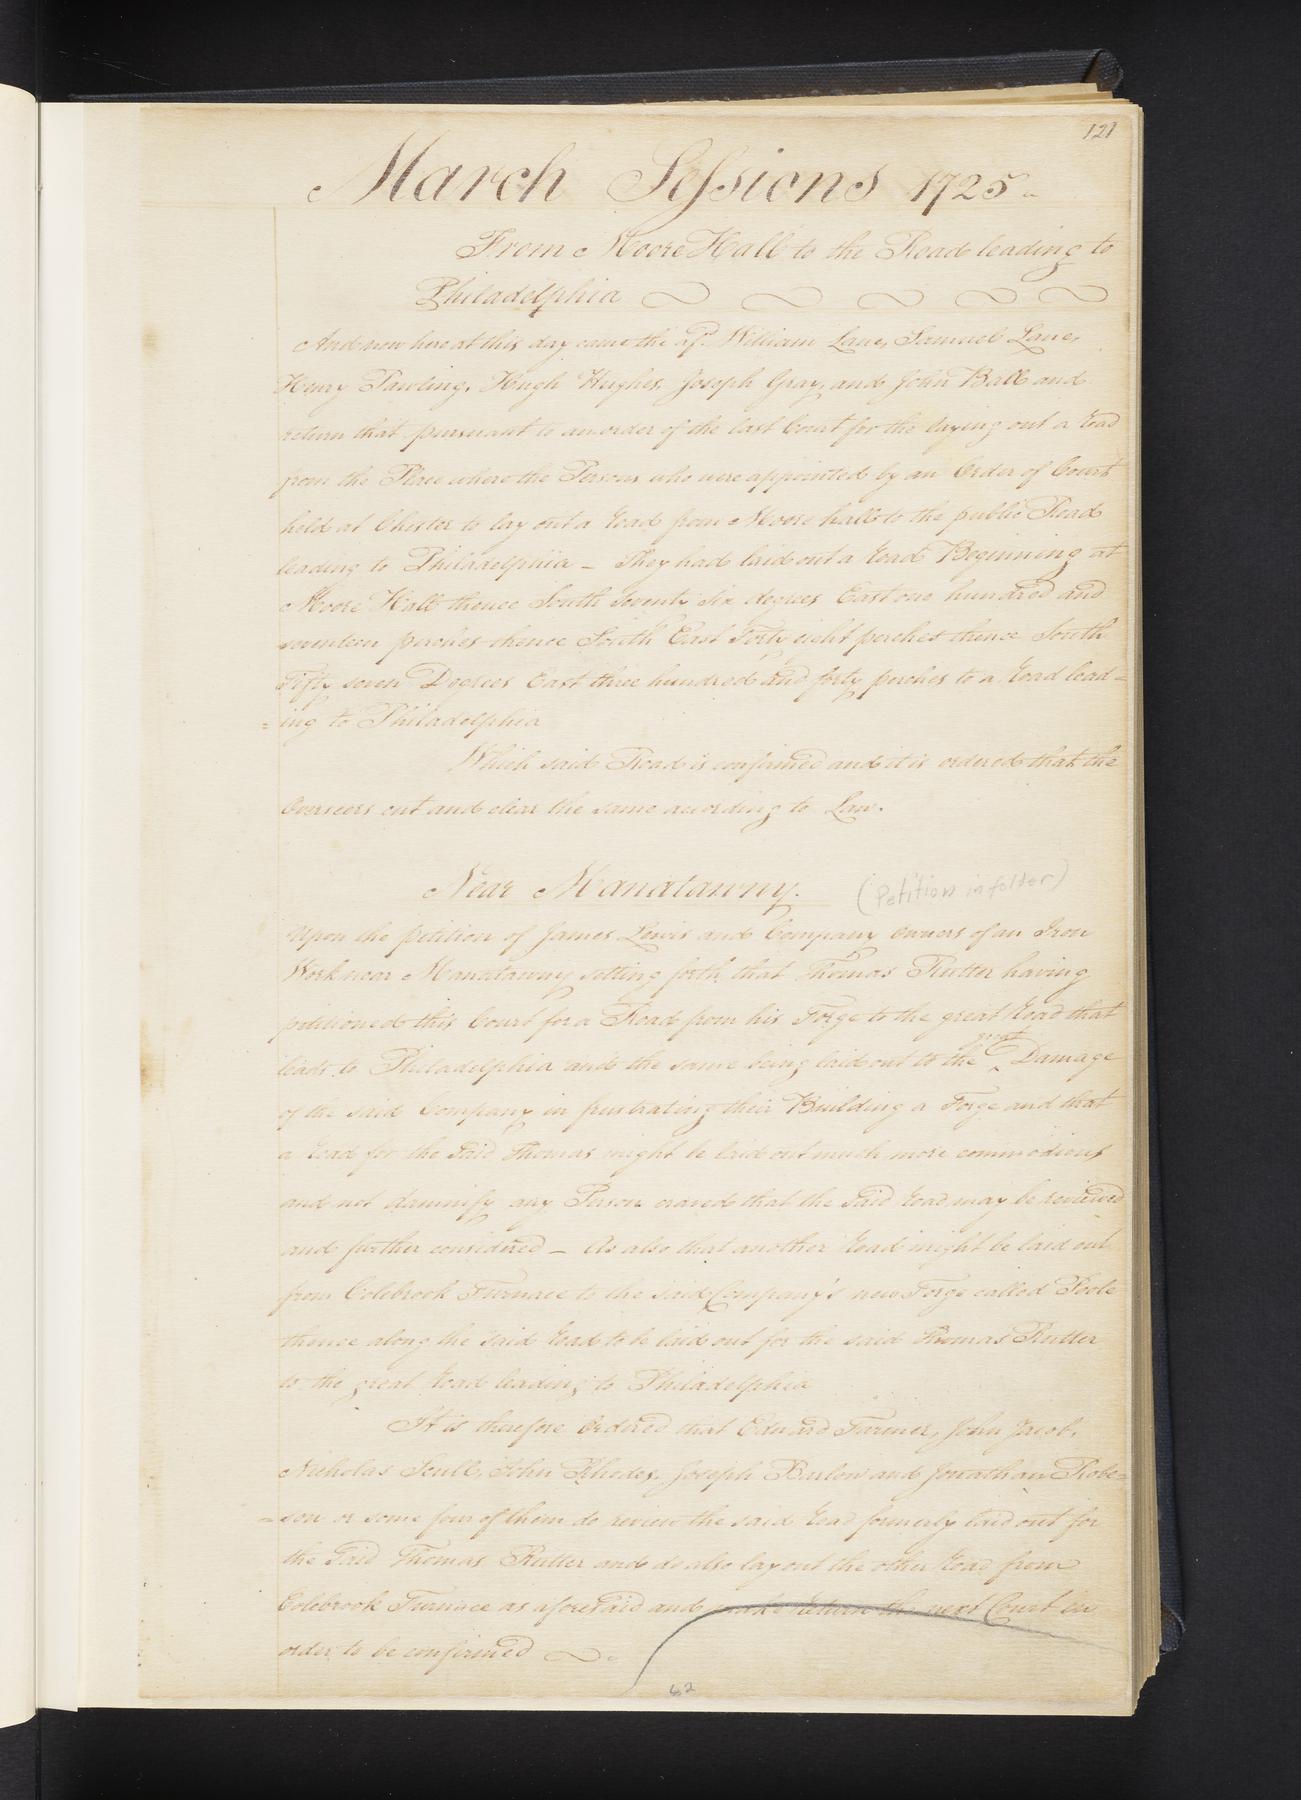 121
March Sessions 1725
From Moore Hall to the Road leading to
Philadelphia
And now here at this day came the sd. William Lane, Samuel Lane,
Henry Pawling, Hugh Hughes, Joseph Gray, and John Ball and
return that pursuant to an order of the last Court for the laying out a Road
from the Place where the Persons who were appointed by an Order of Court
held at Chester to lay out a Road from Moore hall to the public Road
leading to Philadelphia – They had laid out a Road Beginning at
Moore Hall thence South Seventy six degrees East one hundred and
seventeen perches thence South East Forty eight perches thence South
Fifty seven Degrees East three hundred and forty perches to a Road lead=
=ing to Philadelphia
Which said Road is confirmed and it is ordered that the
Overseers cut and clear the same according to Law.
Near Manatawny.
(Petition in folder)
Upon the petition of James Lewis and Company owners of an Iron
Work near Manatawny setting forth that Thomas Rutter having
petitioned this Court for a Road from his Forge to the great Road that
leads to Philadelphia and the same being laid out to the great Damage
of the said Company in frustrating their Building a Forge and that
a Road for the Said Thomas might be laid out much more commodious
and not damnify any Person craved that the Said Road may be reviewed
and further considered – As also that another Road might be laid out
from Colebrook Furnace to the said Company's new Forge called Poole
thence along the said Road to be laid out for the said Thomas Rutter
to the great Road leading to Philadelphia
It is therefore Ordered that Edward Farmer, John Jacob,
Nicholas Scull, John Rhodes, Joseph Barlow and Jonathan Robe=
=son or some four of them do review the said Road formerly laid out for
the Said Thomas Rutter and do also lay out the other Road from
Colebrook Furnace as aforeSaid and make return the next Court in
order to be confirmed
62